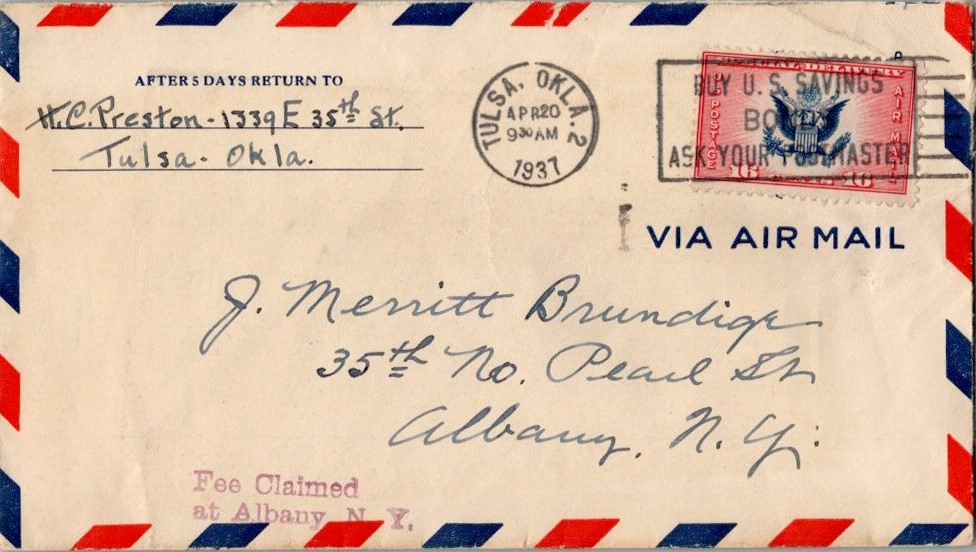 AFTER 5 DAYS RETURN TO
H.C. Preston - 1339 E 35th St.
Tulsa - Okla.
TULSA, OKLA. 2
APR 20
9 30 AM
1937
BUY U.S. SAVINGS
ASK YOUR POSTMASTER
POSTAGE
AIR MAIL
16 16
VIA AIR MAIL
J. Merritt Brundige
35th No. Pearl St
Albany, N. Y.
Fee Claimed
at Albany N. Y.